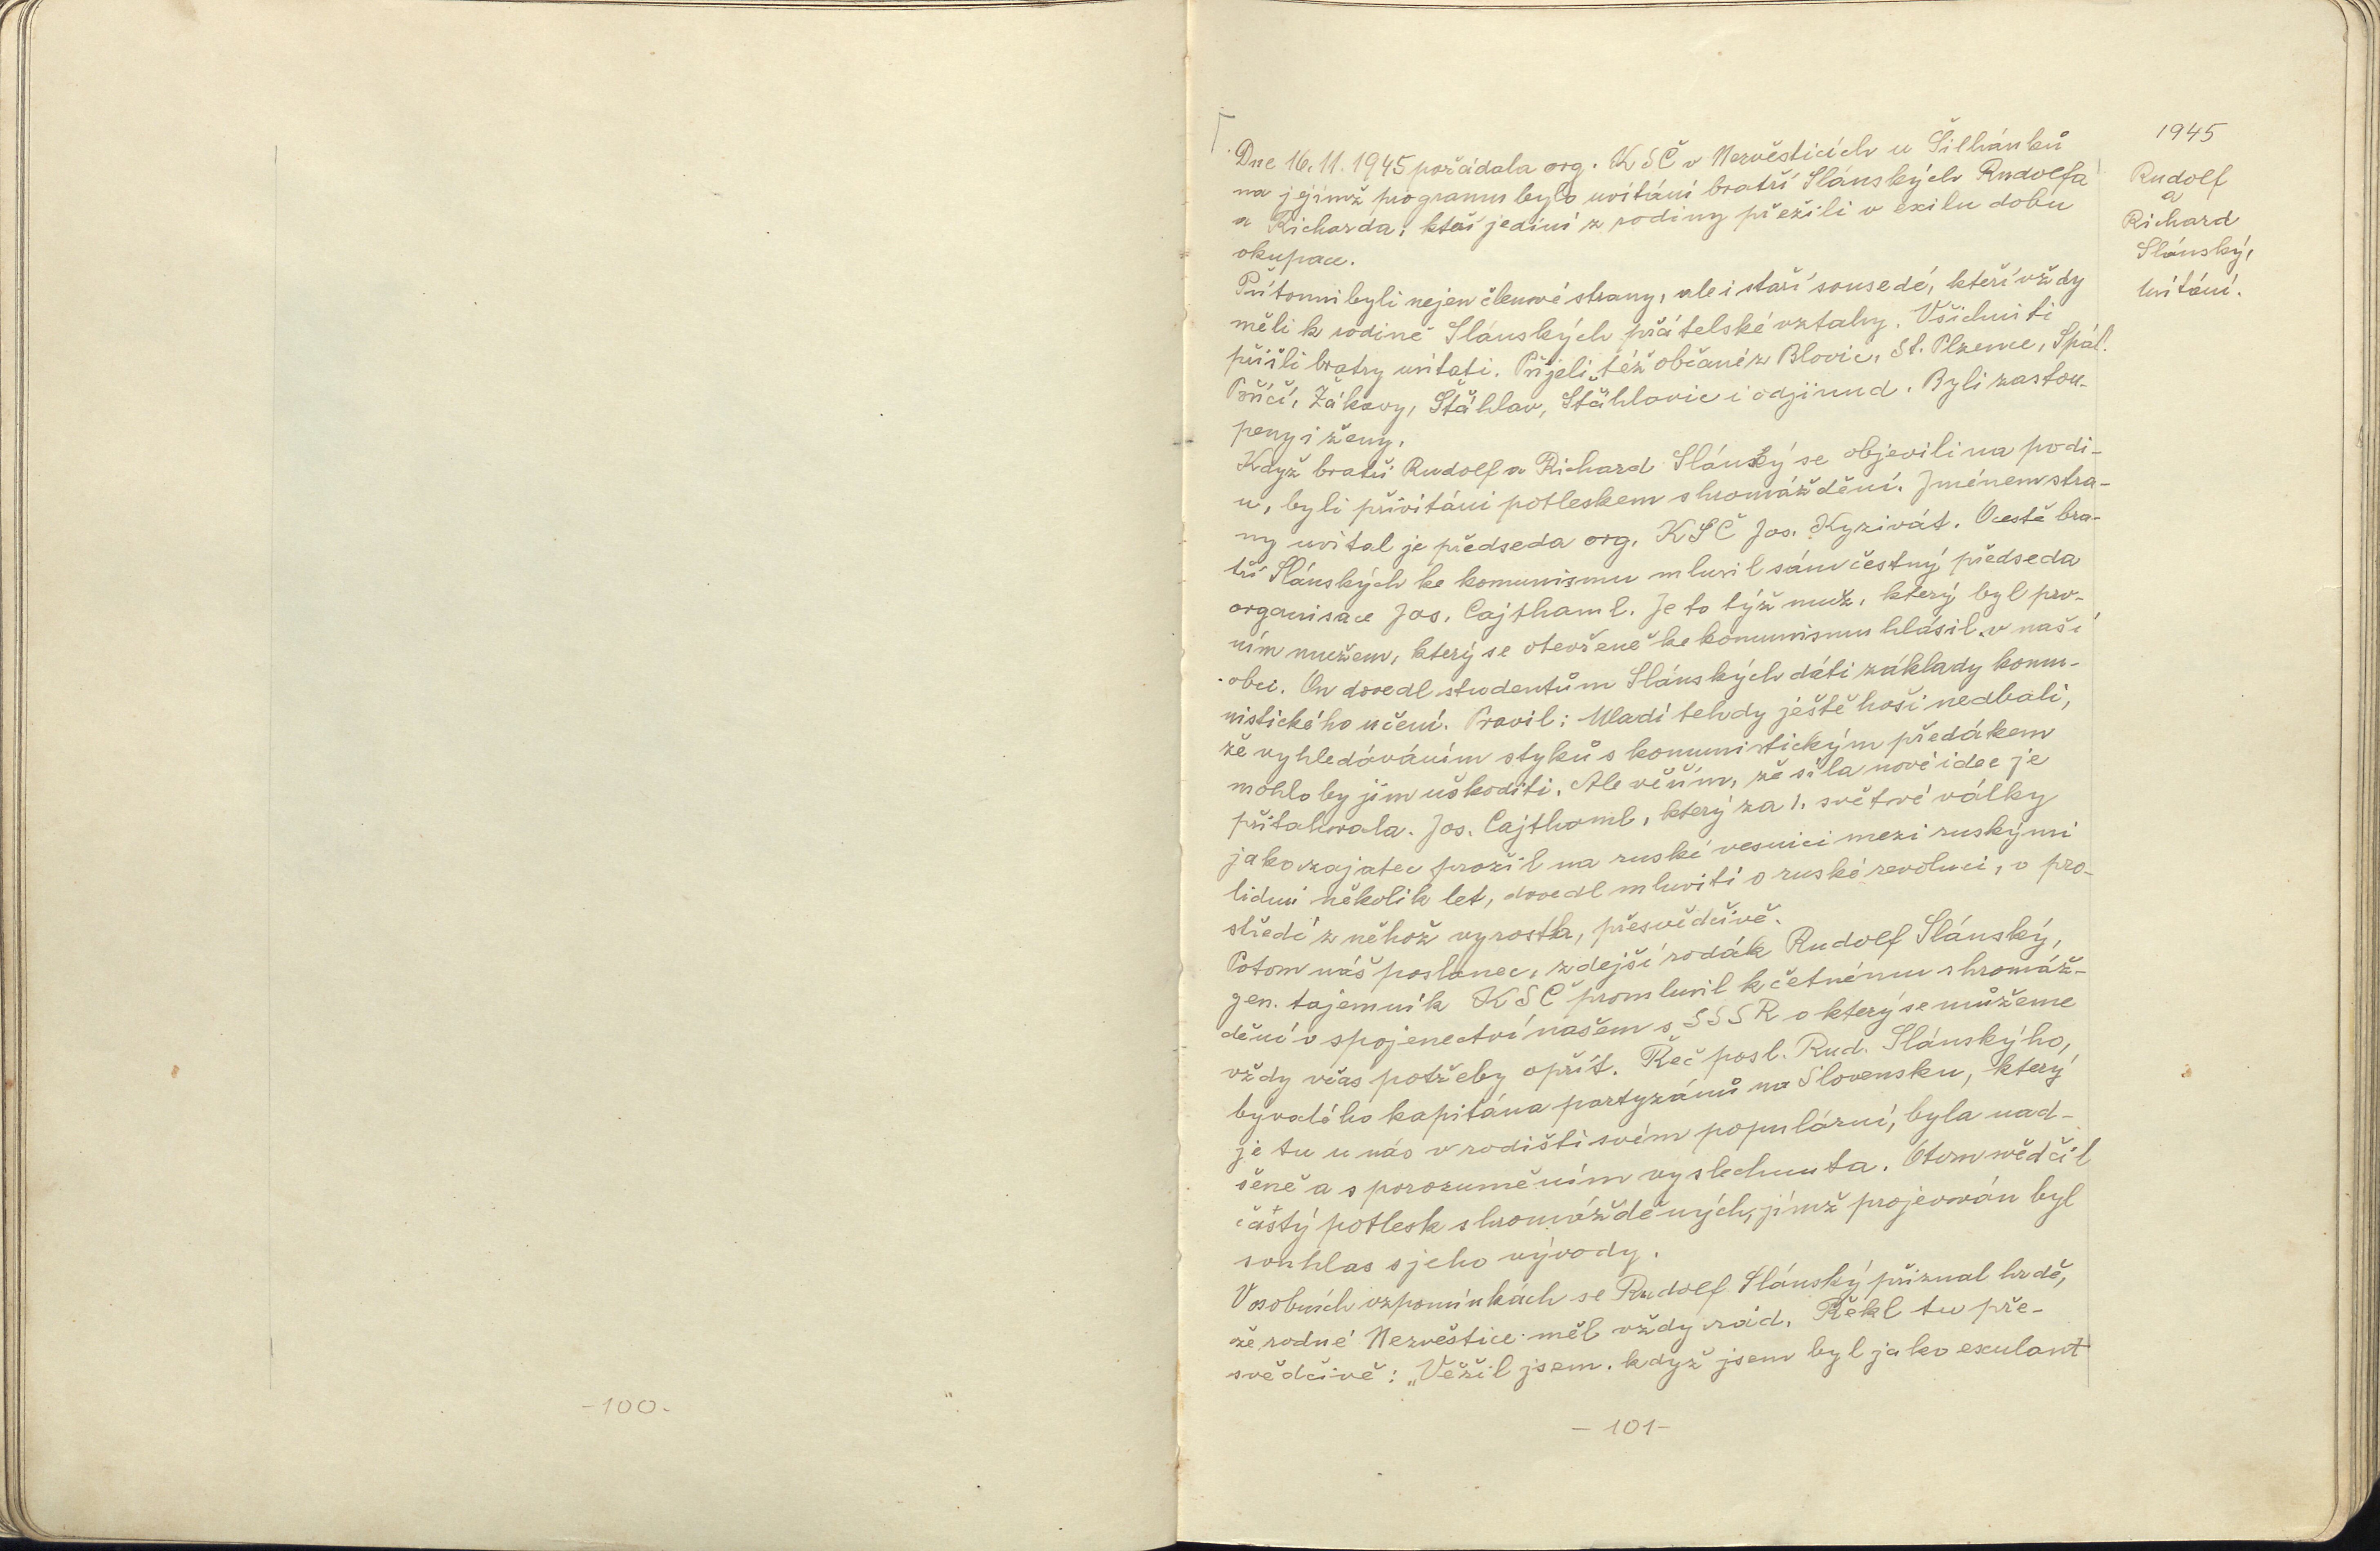 1945
Rudolf
a
Richard
Slánský,
uvítání.
Dne 16. 11. 1945 pořádala org. KSČ v Nezvěsticích u Šilhánků
na jejímž programu bylo uvítání bratří Slánských Rudolfa
a Richarda, kteří jediní z rodiny přežili v exilu dobu
okupace.
Přítomni byli nejen členové strany, ale i staří sousedé, kteří vždy
měli k rodině Slánských přátelské vztahy. Všichni ti
přišli bratry uvítati. Přijeli též občané z Blovic, St. Plzence, Spál.
Poříčí, Žákavy, Šťáhlav, Šťáhlavic i odjinud. Byli zastou-
peny i ženy.
Když bratři Rudolf a Richard Slánský se objevili na podi-
u, byli přivítáni potleskem shromáždění. Jménem stra-
ny uvítal je předseda org. KSČ Jos. Kyzivát. O cestě bra-
tří Slánských ke komunismu mluvil sám čestný předseda
organisace Jos. Cajthaml. Je to týž muž, který byl prv-
ním mužem, který se otevřeně ke komunismu hlásil v naší
obci. On dovedl studentům Slánských dáti základy komu-
nistického učení. Pravil: Mladí tehdy ještě hoši nedbali,
že vyhledáváním styků s komunistickým předákem
mohlo by jim uškoditi. Ale věřím, že síla nové idee je
přitahovala. Jos. Cajthaml, který za 1. světové války
jako zajatec prožil na ruské vesnici mezi ruskými
lidmi několik let, dovedl mluviti o ruské revoluci, o pro-
středí z něhož vyrostla, přesvědčivě.
Potom náš poslanec, zdejší rodák Rudolf Slánský,
gen. tajemník KSČ promluvil k četnému shromáž-
dění o spojenectví našem s SSSR o který se můžeme
vždy včas potřeby opřít. Řeč posl. Rud. Slánskýho,
bývalého kapitána partyzánů na Slovensku, který
je tu u nás v rodišti svém populární, byla nad-
šeně a s porozuměním vyslechnuta. O tom svědčil
častý potlesk shromážděných, jímž projevován byl
souhlas s jeho vývody.
V osobních vzpomínkách se Rudolf Slánský přiznal hrdě,
že rodné Nezvěstice měl vždy rád. Řekl tu pře-
svědčivě: „Věřil jsem, když jsem byl jako exulant
-100-
-101-